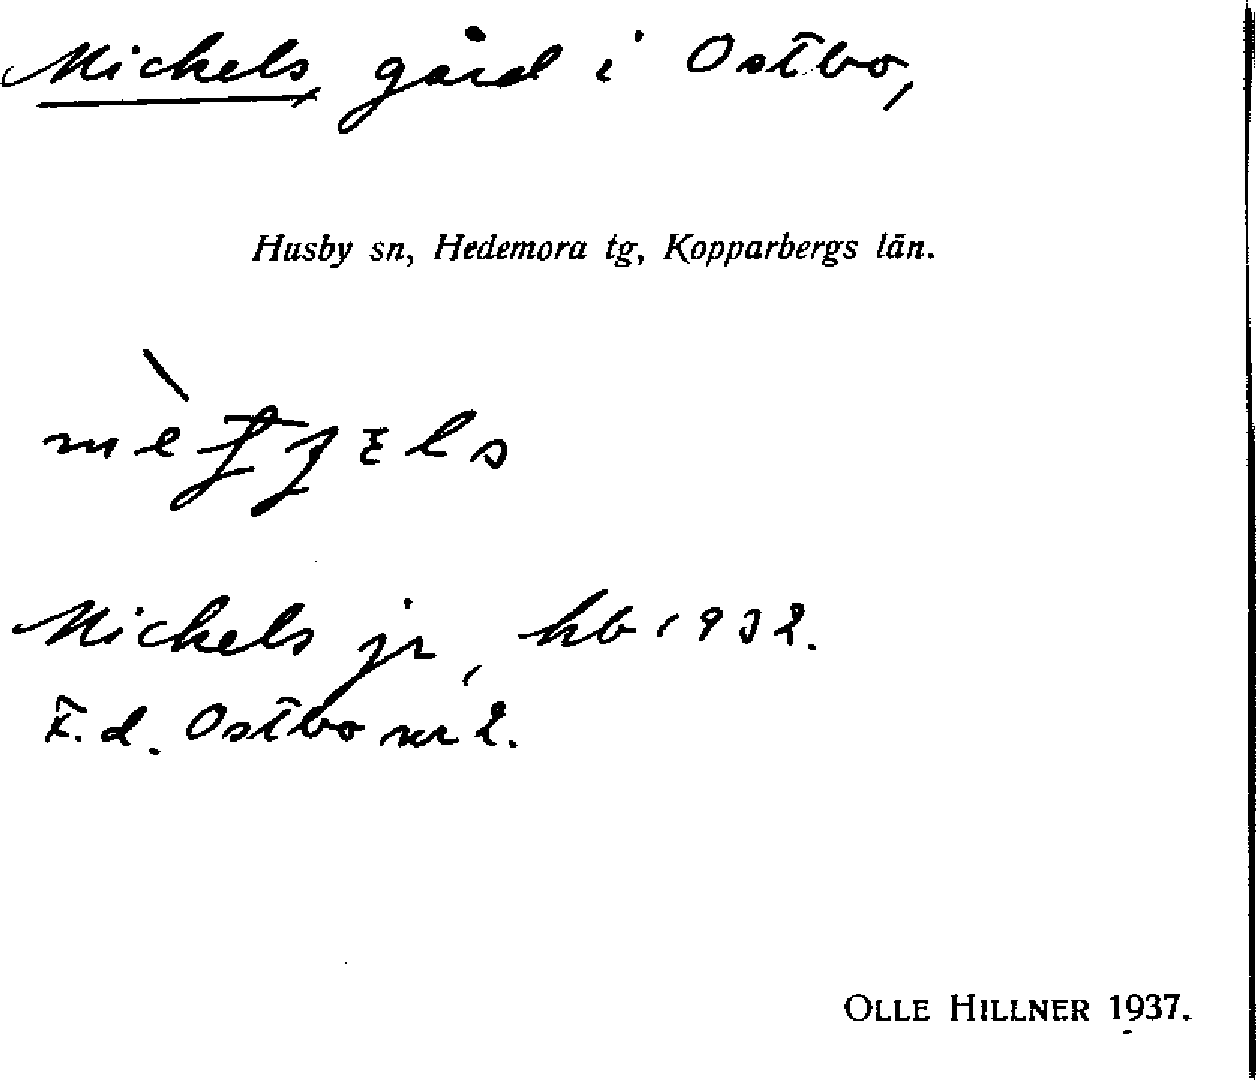 Mickels, gård i Ostbo,
Husby sn, Hedemora tg, Kopparbergs län.
Mickels jr, hb 1932.
F.d. Ostbo nr 2.
OLLE HILLNER 1937.